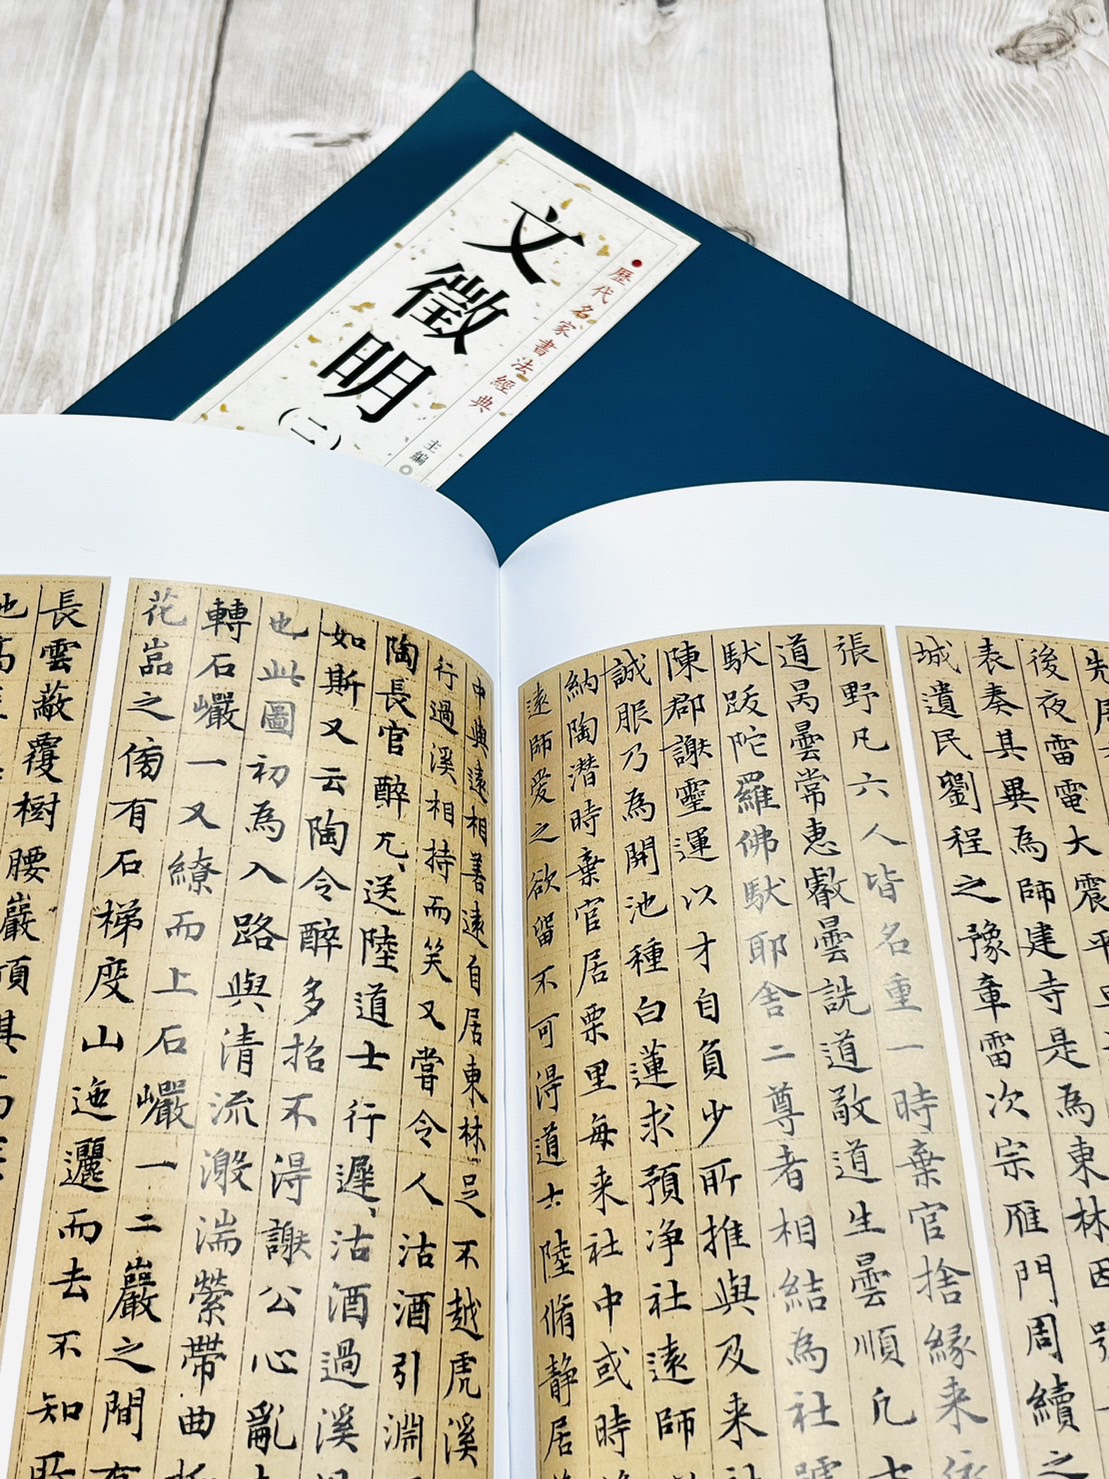 歷代名家書法經典
文徵明
(二)
主編
表奏其異為師建寺是為東林
城遺民劉程之豫章雷次宗雁門周續之
張野凡六人皆名重一時棄官捨緣来依
道昺曇常惠叡曇詵道敬道生曇順凢七
馱跋陀羅佛馱耶舍二尊者相結為社號
陳郡謝靈運以才自負少所推與及来社
誠服乃為開池種白蓮求預净社遠師
納陶潛時棄官居栗里每来社中或時
遠師愛之欲留不可得道士陸脩静居
中與遠相善遠自居東林足不越虎溪
行過溪相持而笑又嘗令人沽酒引淵
陶長官醉兀兀送陸道士行遲遲沽酒過溪
如斯又云陶令醉多招不得謝公心亂
也此圖初為入路與清流激湍縈帶曲
轉石巖一又繚而上石巖一二巖之間有
花嵓之傍有石梯度山迤邐而去不知所
長雲蔽覆樹腰巖頂其